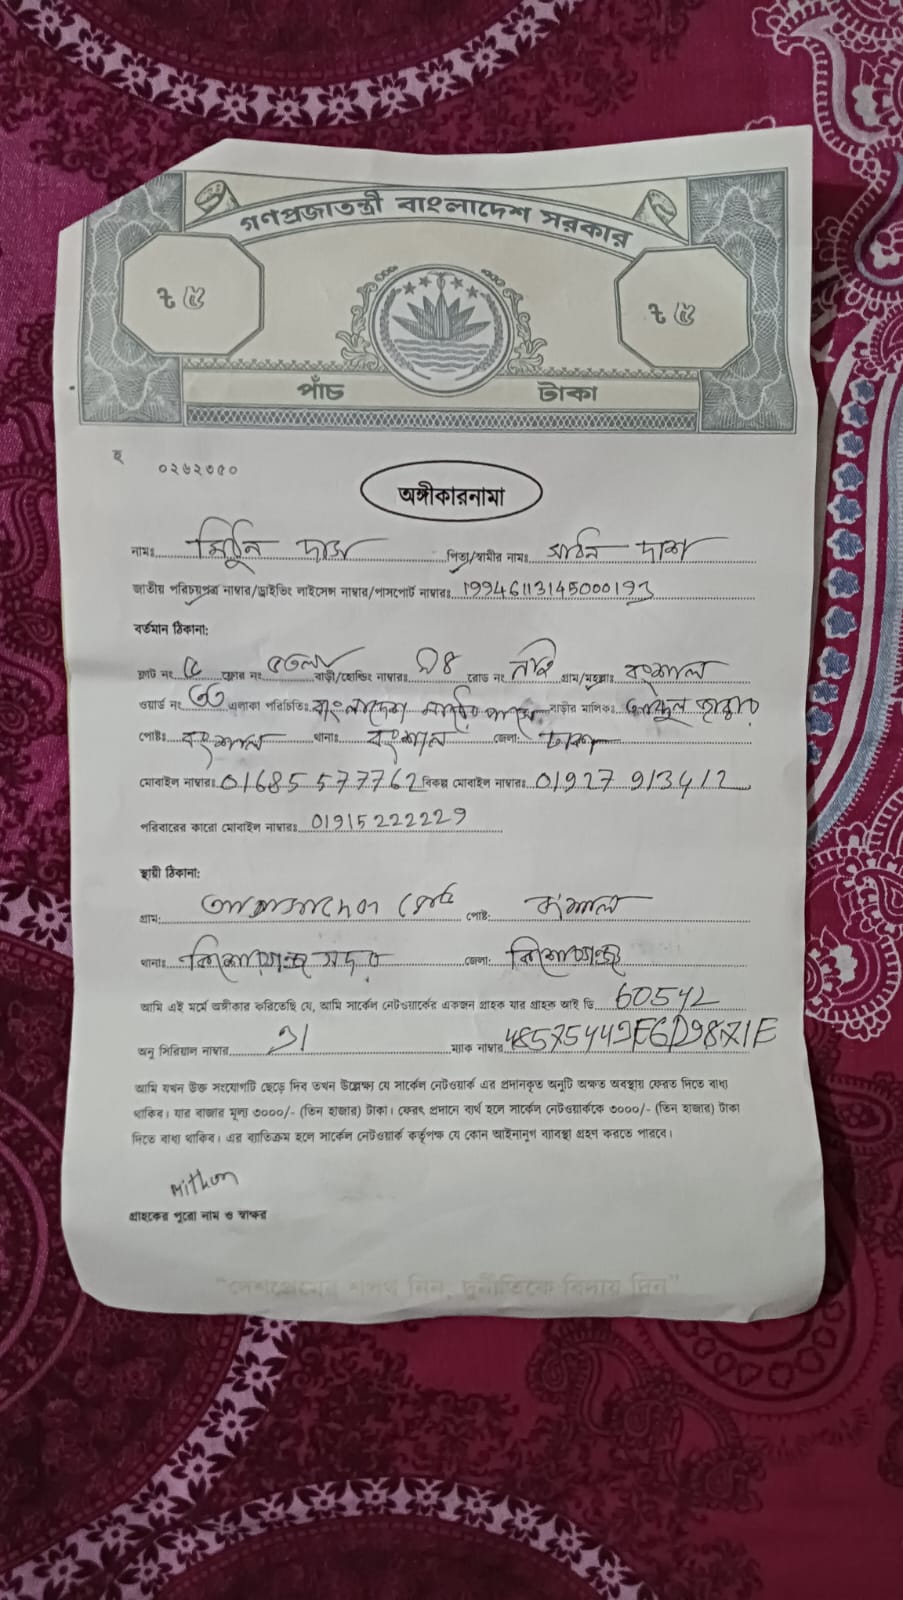 গণপ্রজাতন্ত্রী বাংলাদেশ সরকার
ট ৫ ট ৫
পাঁচ টাকা
হ ০২৬২৩৫০
অঙ্গীকারনামা
নামঃ মিঠুন দাস পিতা/স্বামীর নামঃ দাশ
জাতীয় পরিচয়পত্র নাম্বার/ড্রাইভিং লাইসেন্স নাম্বার/পাসপোর্ট নাম্বারঃ 19946113145000193
বর্তমান ঠিকানা:
ফ্লাট নং ফ্লোর নং ৫তলা বাড়ী/হোল্ডিং নাম্বারঃ রোড নং নাই গ্রাম/মহল্লাঃ বংশাল
ওয়ার্ড নং ৩৩ এলাকা পরিচিতিঃ বাংলাদেশ মাঠের পাশে বাড়ীর মালিকঃ আব্দুল
পোষ্টঃ বংশাল থানাঃ বংশাল জেলা: ঢাকা
মোবাইল নাম্বারঃ 01685577762 বিকল্প মোবাইল নাম্বারঃ 01927913412
পরিবারের কারো মোবাইল নাম্বারঃ 01915222229
স্থায়ী ঠিকানা:
গ্রাম: পোষ্ট:
থানাঃ কিশোরগঞ্জ সদর জেলা: কিশোরগঞ্জ
আমি এই মর্মে অঙ্গীকার করিতেছি যে, আমি সার্কেল নেটওয়ার্কের একজন গ্রাহক যার গ্রাহক আই ডি 60542
অনু সিরিয়াল নাম্বার ম্যাক নাম্বার
আমি যখন উক্ত সংযোগটি ছেড়ে দিব তখন উল্লেক্ষ্য যে সার্কেল নেটওয়ার্ক এর প্রদানকৃত অনুটি অক্ষত অবস্থায় ফেরত দিতে বাধ্য
থাকিব। যার বাজার মূল্য ৩০০০/- (তিন হাজার) টাকা। ফেরৎ প্রদানে ব্যর্থ হলে সার্কেল নেটওয়ার্ককে ৩০০০/- (তিন হাজার) টাকা
দিতে বাধ্য থাকিব। এর ব্যতিক্রম হলে সার্কেল নেটওয়ার্ক কর্তৃপক্ষ যে কোন আইনানুগ ব্যবস্থা গ্রহণ করতে পারবে।
Mithun
গ্রাহকের পুরো নাম ও স্বাক্ষর
"দেশপ্রেমের শপথ নিন, দুর্নীতিকে বিদায় দিন"